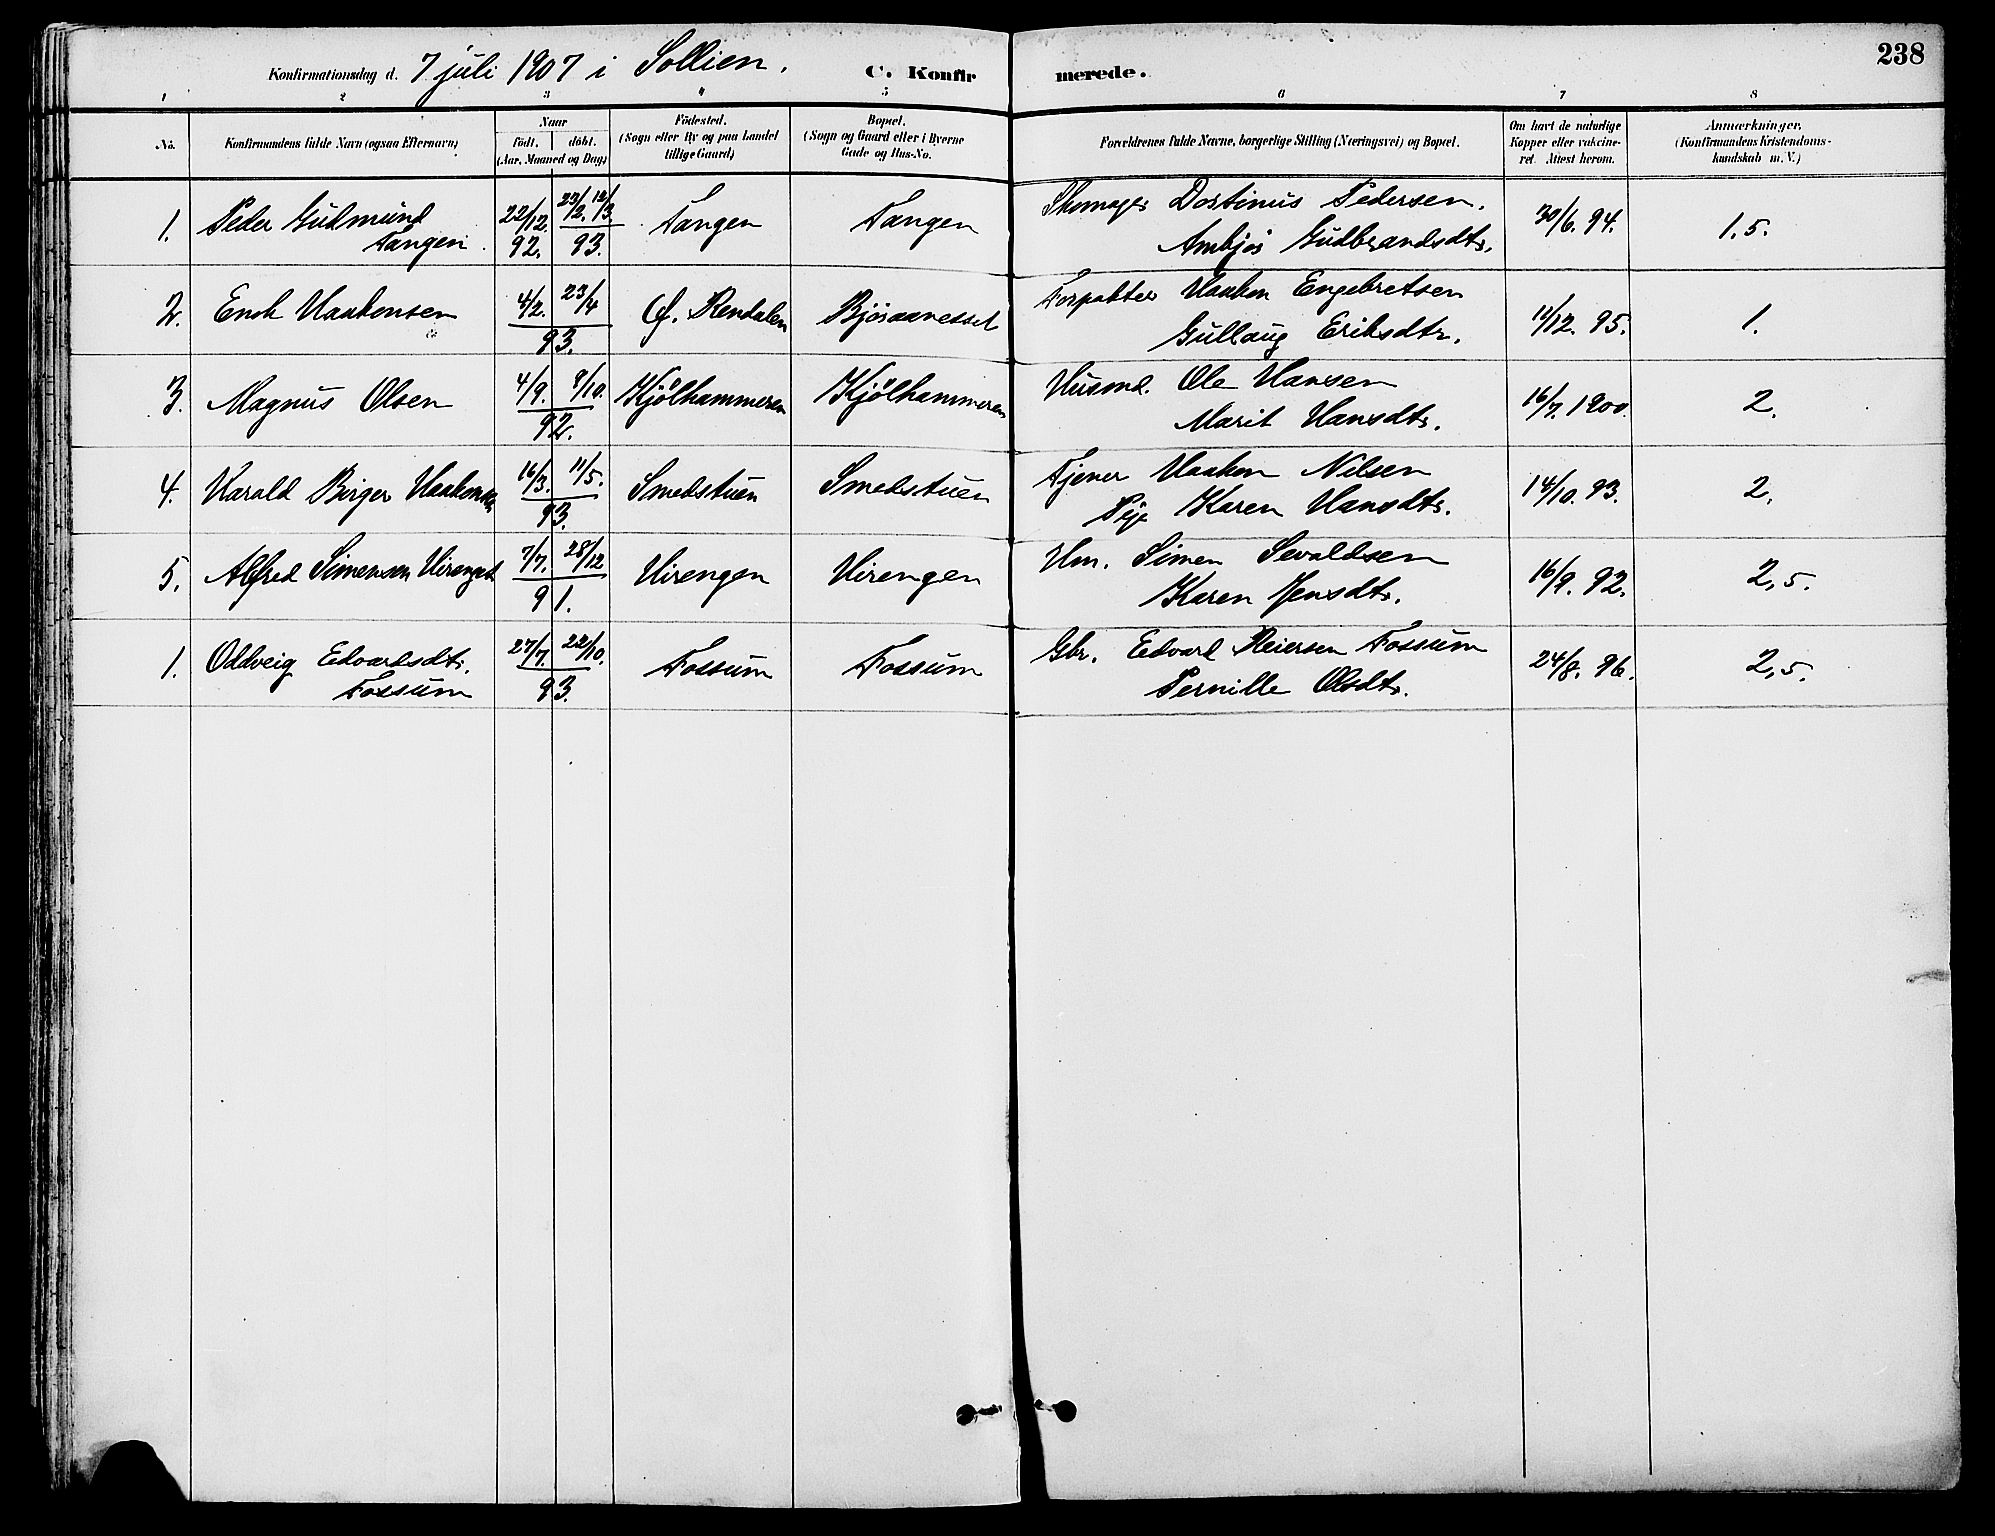 238
Konfirmationsdag d. 7 juli 1907 i Sollien. C. Konfir merede.
1 2 3 4 5 6 7 8
No. Konfirmandens fulde Navn (ogsaa Efternavn) Naar født, døbt. (Aar, Maaned og Dag) Fødested. (Sogn eller By og paa Landet tillige Gaard) Bopæl. (Sogn og Gaard eller i Byerne Gade og Hus-No. Forældrenes fulde Navne, borgerlige Stilling (Næringsvei) og Bopæl. Om havt de naturlige Kopper eller vakcineret. Attest herom. Anmærkninger. (Konfirmandens Kristendomskundskab m. V.)
1. Peder Gudmund 22/12. 23/2. 12/3. Tangen Tangen Skomager Dortinus Pedersen. 30/6. 94. 1.5.
Tangen. 92. 93. Ambjør Gudbrandsdtr.
2. Enok Haakonsen 4/2. 23/4 Ø. Rendalen Bjøraanesset Forpakter Haakon Engebretsen 11/12. 95. 1.
93. Gullaug Eriksdtr.
3. Magnus Olsen 4/9. 9/10. Kjølhammeren Kjølhammeren Husmd. Ole Hansen 16/7. 1900. 2.
92. Marit Hansdtr.
4. Harald Birger Haakonsen 16/3. 11/5. Smedstuen Smedstuen Tjener Haakon Nilsen 14/10. 93. 2.
93. Pige Karen Hansdtr.
5. Alfred Simensen Hirenget 7/7. 28/12 Hirengen Hirengen Hm. Simen Sevaldsen 16/9. 92. 2,5.
91. Karen Jensdtr.
1. Oddveig Edvardsdtr. 27/7. 22/10. Fossum Fossum Gbr. Edvard Reiersen Fossum 24/8. 96. 2,5.
Fossum 93. Pernille Olsdtr.